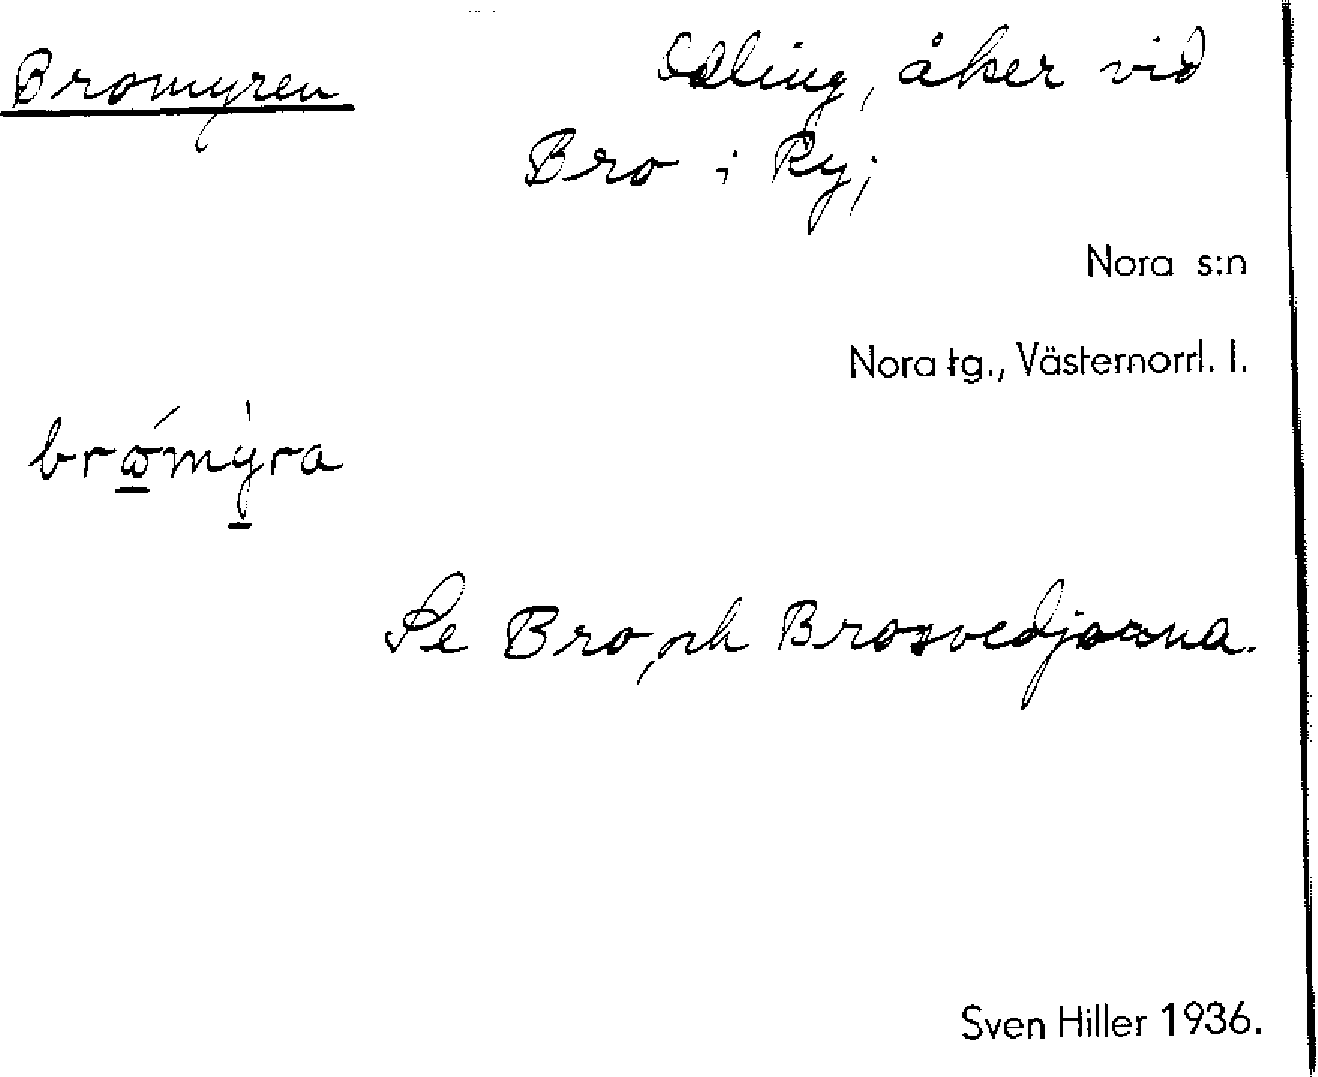 Bromyren
Odling, åker vid
Bro i Ry;
Nora s:n
Nora tg., Västernorrl. l.
brώ̲mỳ̲ra
Se Bro, och Brosvedjorna.
Sven Hiller 1936.